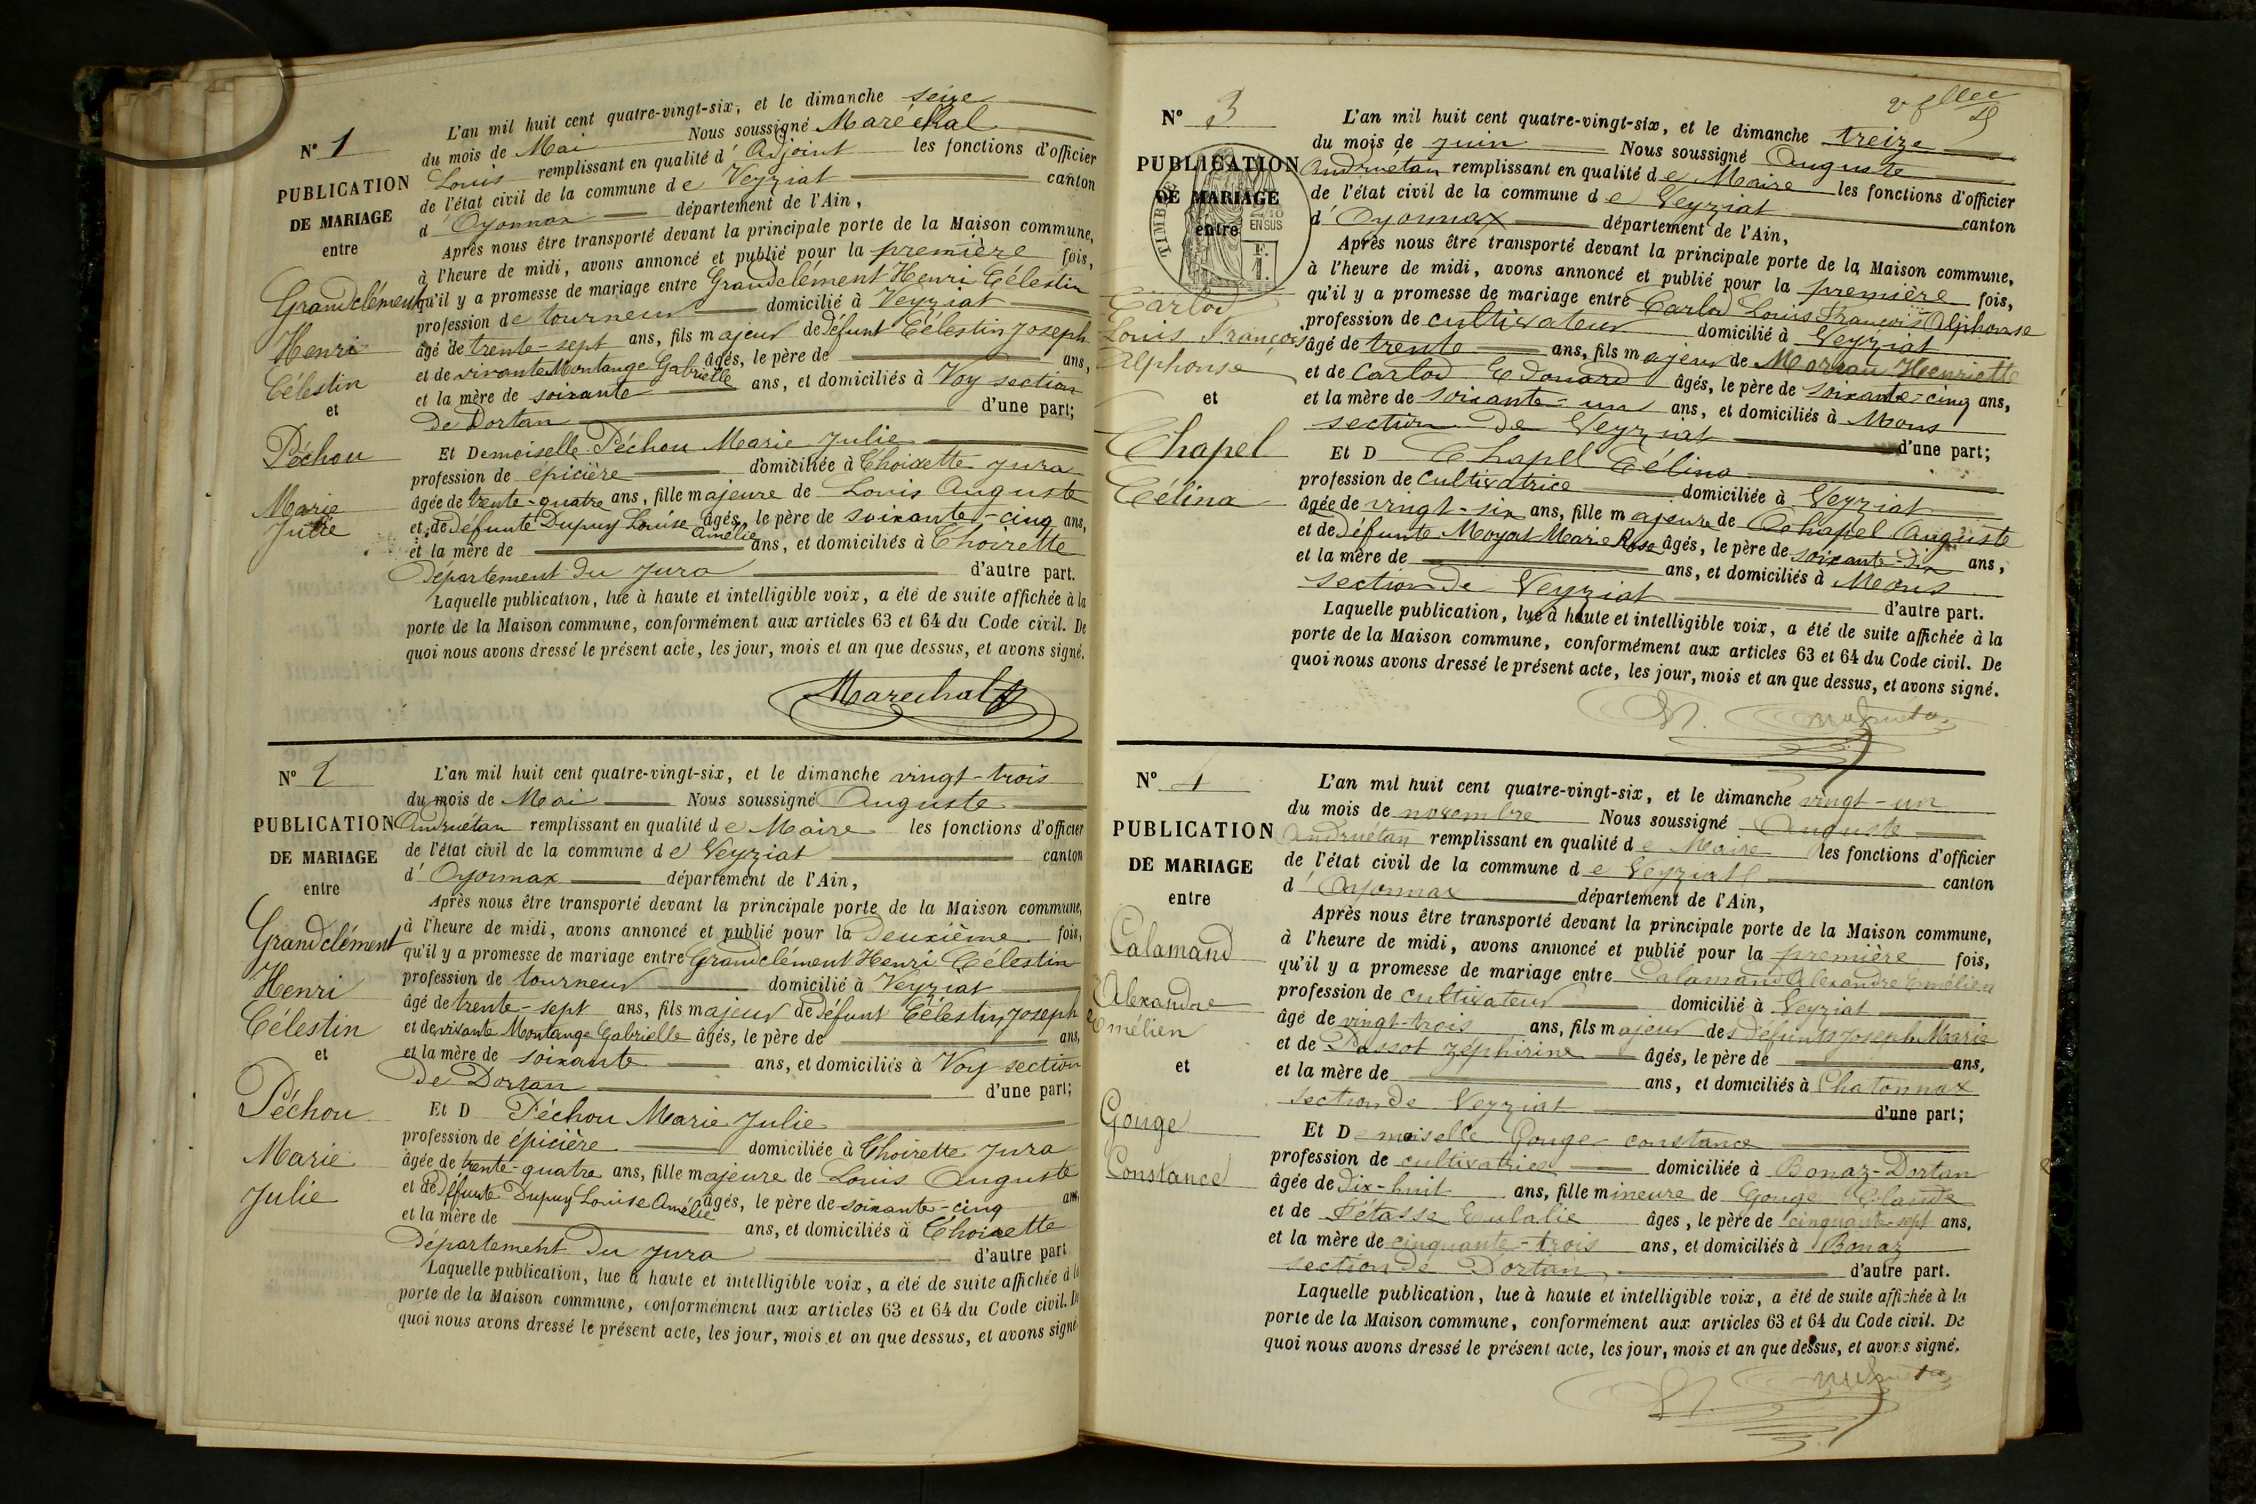 N° 1
PUBLICATION
DE MARIAGE
entre
Grandclément
Henri
Célestin
et
Péchou
Marie
Julie
L'an mil huit cent quatre-vingt-six, et le dimanche seize
du mois de Mai Nous soussigné Maréchal
Louis remplissant en qualité d' Adjoint les fonctions d'officier
de l'état civil de la commune de Veyziat canton
d' Oyonnax département de l'Ain,
Après nous être transporté devant la principale porte de la Maison commune,
à l'heure de midi, avons annoncé et publié pour la première fois,
qu'il y a promesse de mariage entre Grandclément Henri Célestin
profession de tourneur domicilié à Veyziat
âgé de trente-sept ans, fils majeur de défunt Célestin Joseph
et de vivante Montange Gabrielle âgés, le père de ans,
et la mère de soixante ans, et domiciliés à Voy section
de Dortan d'une part;
Et Demoiselle Péchou Marie Julie
profession de épicière domiciliée à Thoirette Jura
âgée de trente-quatre ans, fille majeure de Louis Auguste
et de défunte Dupuy Louise Amélie âgés, le père de soixante-cinq ans,
et la mère de ans, et domiciliés à Thoirette
Département du Jura d'autre part.
Laquelle publication, lue à haute et intelligible voix, a été de suite affichée à la
porte de la Maison commune, conformément aux articles 63 et 64 du Code civil. De
quoi nous avons dressé le présent acte, les jour, mois et an que dessus, et avons signé.
Marechal
N° 2
PUBLICATION
DE MARIAGE
entre
Grandclément
Henri
Célestin
et
Péchou
Marie
Julie
L'an mil huit cent quatre-vingt-six, et le dimanche vingt-trois
du mois de Mai Nous soussigné Auguste
Andruétan remplissant en qualité de Maire les fonctions d'officier
de l'état civil de la commune de Veyziat canton
d' Oyonnax département de l'Ain,
Après nous être transporté devant la principale porte de la Maison commune,
à l'heure de midi, avons annoncé et publié pour la Deuxième fois,
qu'il y a promesse de mariage entre Grandclément Henri Célestin
profession de tourneur domicilié à Veyziat
âgé de trente-sept ans, fils majeur de défunt Célestin Joseph
et de vivante Montange Gabrielle âgés, le père de ans,
et la mère de soixante ans, et domiciliés à Voy section
de Dortan d'une part;
Et D Péchou Marie Julie
profession de épicière domiciliée à Thoirette Jura
âgée de trente-quatre ans, fille majeure de Louis Auguste
et de défunte Dupuy Louise Amélie âgés, le père de soixante-cinq ans,
et la mère de ans, et domiciliés à Thoirette
Département du Jura d'autre part
Laquelle publication, lue à haute et intelligible voix, a été de suite affichée à la
porte de la Maison commune, conformément aux articles 63 et 64 du Code civil. De
quoi nous avons dressé le présent acte, les jour, mois et an que dessus, et avons signé
N° 3
PUBLICATION
DE MARIAGE
entre
TIMBRE
EN SUS
F.
1.
Carlod
Louis François
Alphonse
et
Chapel
Célina
L'an mil huit cent quatre-vingt-six, et le dimanche treize
du mois de juin Nous soussigné Auguste
Andruétan remplissant en qualité de Maire les fonctions d'officier
de l'état civil de la commune de Veyziat canton
d' Oyonnax département de l'Ain,
Après nous être transporté devant la principale porte de la Maison commune,
à l'heure de midi, avons annoncé et publié pour la première fois,
qu'il y a promesse de mariage entre Carlod Louis François Alphonse
profession de cultivateur domicilié à Veyziat
âgé de trente ans, fils majeur de Moreau Henriette
et de Carlod Edouard âgés, le père de soixante-cinq ans,
et la mère de soixante-un ans, et domiciliés à Mons
section de Veyziat d'une part;
Et D Chapel Célina
profession de cultivatrice domiciliée à Veyziat
âgée de vingt-six ans, fille majeure de Chapel Auguste
et de défunte Moyat Marie Rose âgés, le père de soixante-dix ans,
et la mère de ans, et domiciliés à Mons
section de Veyziat d'autre part.
Laquelle publication, lue à haute et intelligible voix, a été de suite affichée à la
porte de la Maison commune, conformément aux articles 63 et 64 du Code civil. De
quoi nous avons dressé le présent acte, les jour, mois et an que dessus, et avons signé.
N° 4
PUBLICATION
DE MARIAGE
entre
Calamand
Alexandre
Emélien
et
Gouge
Constance
L'an mil huit cent quatre-vingt-six, et le dimanche vingt-un
du mois de novembre Nous soussigné Auguste
Andruétan remplissant en qualité de Maire les fonctions d'officier
de l'état civil de la commune de Veyziat canton
d' Oyonnax département de l'Ain,
Après nous être transporté devant la principale porte de la Maison commune,
à l'heure de midi, avons annoncé et publié pour la première fois,
qu'il y a promesse de mariage entre Calamand Alexandre Emélien
profession de cultivateur domicilié à Veyziat
âgé de vingt-trois ans, fils majeur des défunts Joseph Marie
et de Passot Zéphirine âgés, le père de ans,
et la mère de ans, et domiciliés à Chatonnax
section de Veyziat d'une part;
Et Demoiselle Gouge constance
profession de cultivatrice domiciliée à Bonaz-Dortan
âgée de dix-huit ans, fille mineure de Gouge Claude
et de Tétasse Eulalie âges, le père de cinquante-sept ans,
et la mère de cinquante-trois ans, et domiciliés à Bonaz
section de Dortan d'autre part.
Laquelle publication, lue à haute et intelligible voix, a été de suite affichée à la
porte de la Maison commune, conformément aux articles 63 et 64 du Code civil. De
quoi nous avons dressé le présent acte, les jour, mois et an que dessus, et avons signé.